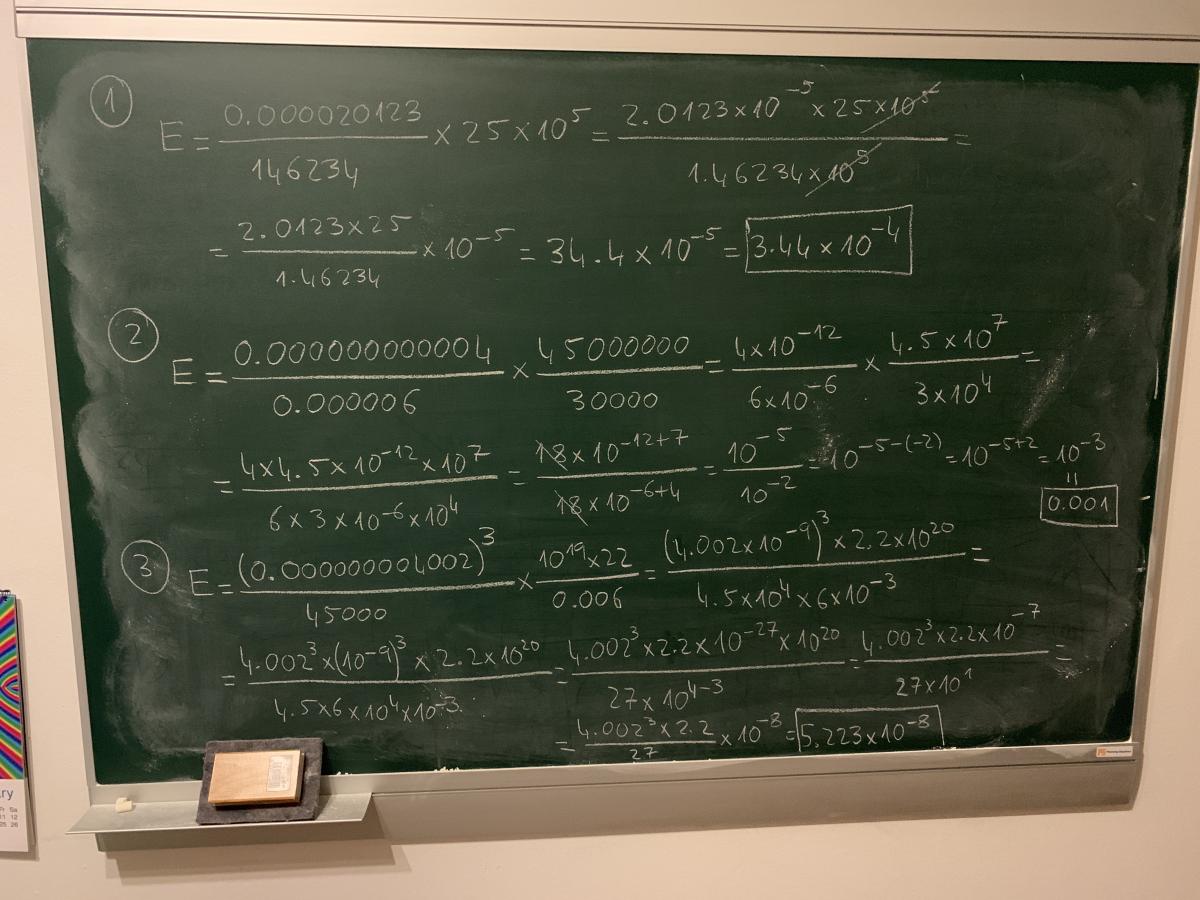 ① E = 0.000020123/146234 × 25 × 10⁵ = 2.0123×10⁻⁵ × 25×10⁵/1.46234×10⁵ =
= 2.0123×25/1.46234 × 10⁻⁵ = 34.4 × 10⁻⁵ = 3.44 × 10⁻⁴
② E = 0.000000000004/0.000006 × 45000000/30000 = 4×10⁻¹²/6×10⁻⁶ × 4.5×10⁷/3×10⁴ =
= 4×4.5×10⁻¹²×10⁷/6×3×10⁻⁶×10⁴ = 18×10⁻¹²⁺⁷/18×10⁻⁶⁺⁴ = 10⁻⁵/10⁻² = 10⁻⁵⁻⁽⁻²⁾ = 10⁻⁵⁺² = 10⁻³
=
0.001
③ E = (0.000000004002)³/45000 × 10¹⁹×22/0.006 = (4.002×10⁻⁹)³×2.2×10²⁰/4.5×10⁴×6×10⁻³ =
= 4.002³×(10⁻⁹)³×2.2×10²⁰/4.5×6×10⁴×10⁻³ = 4.002³×2.2×10⁻²⁷×10²⁰/27×10⁴⁻³ = 4.002³×2.2×10⁻⁷/27×10¹ =
= 4.002³×2.2/27 × 10⁻⁸ = 5.223×10⁻⁸
ry
Fr Sa
11 12
25 26